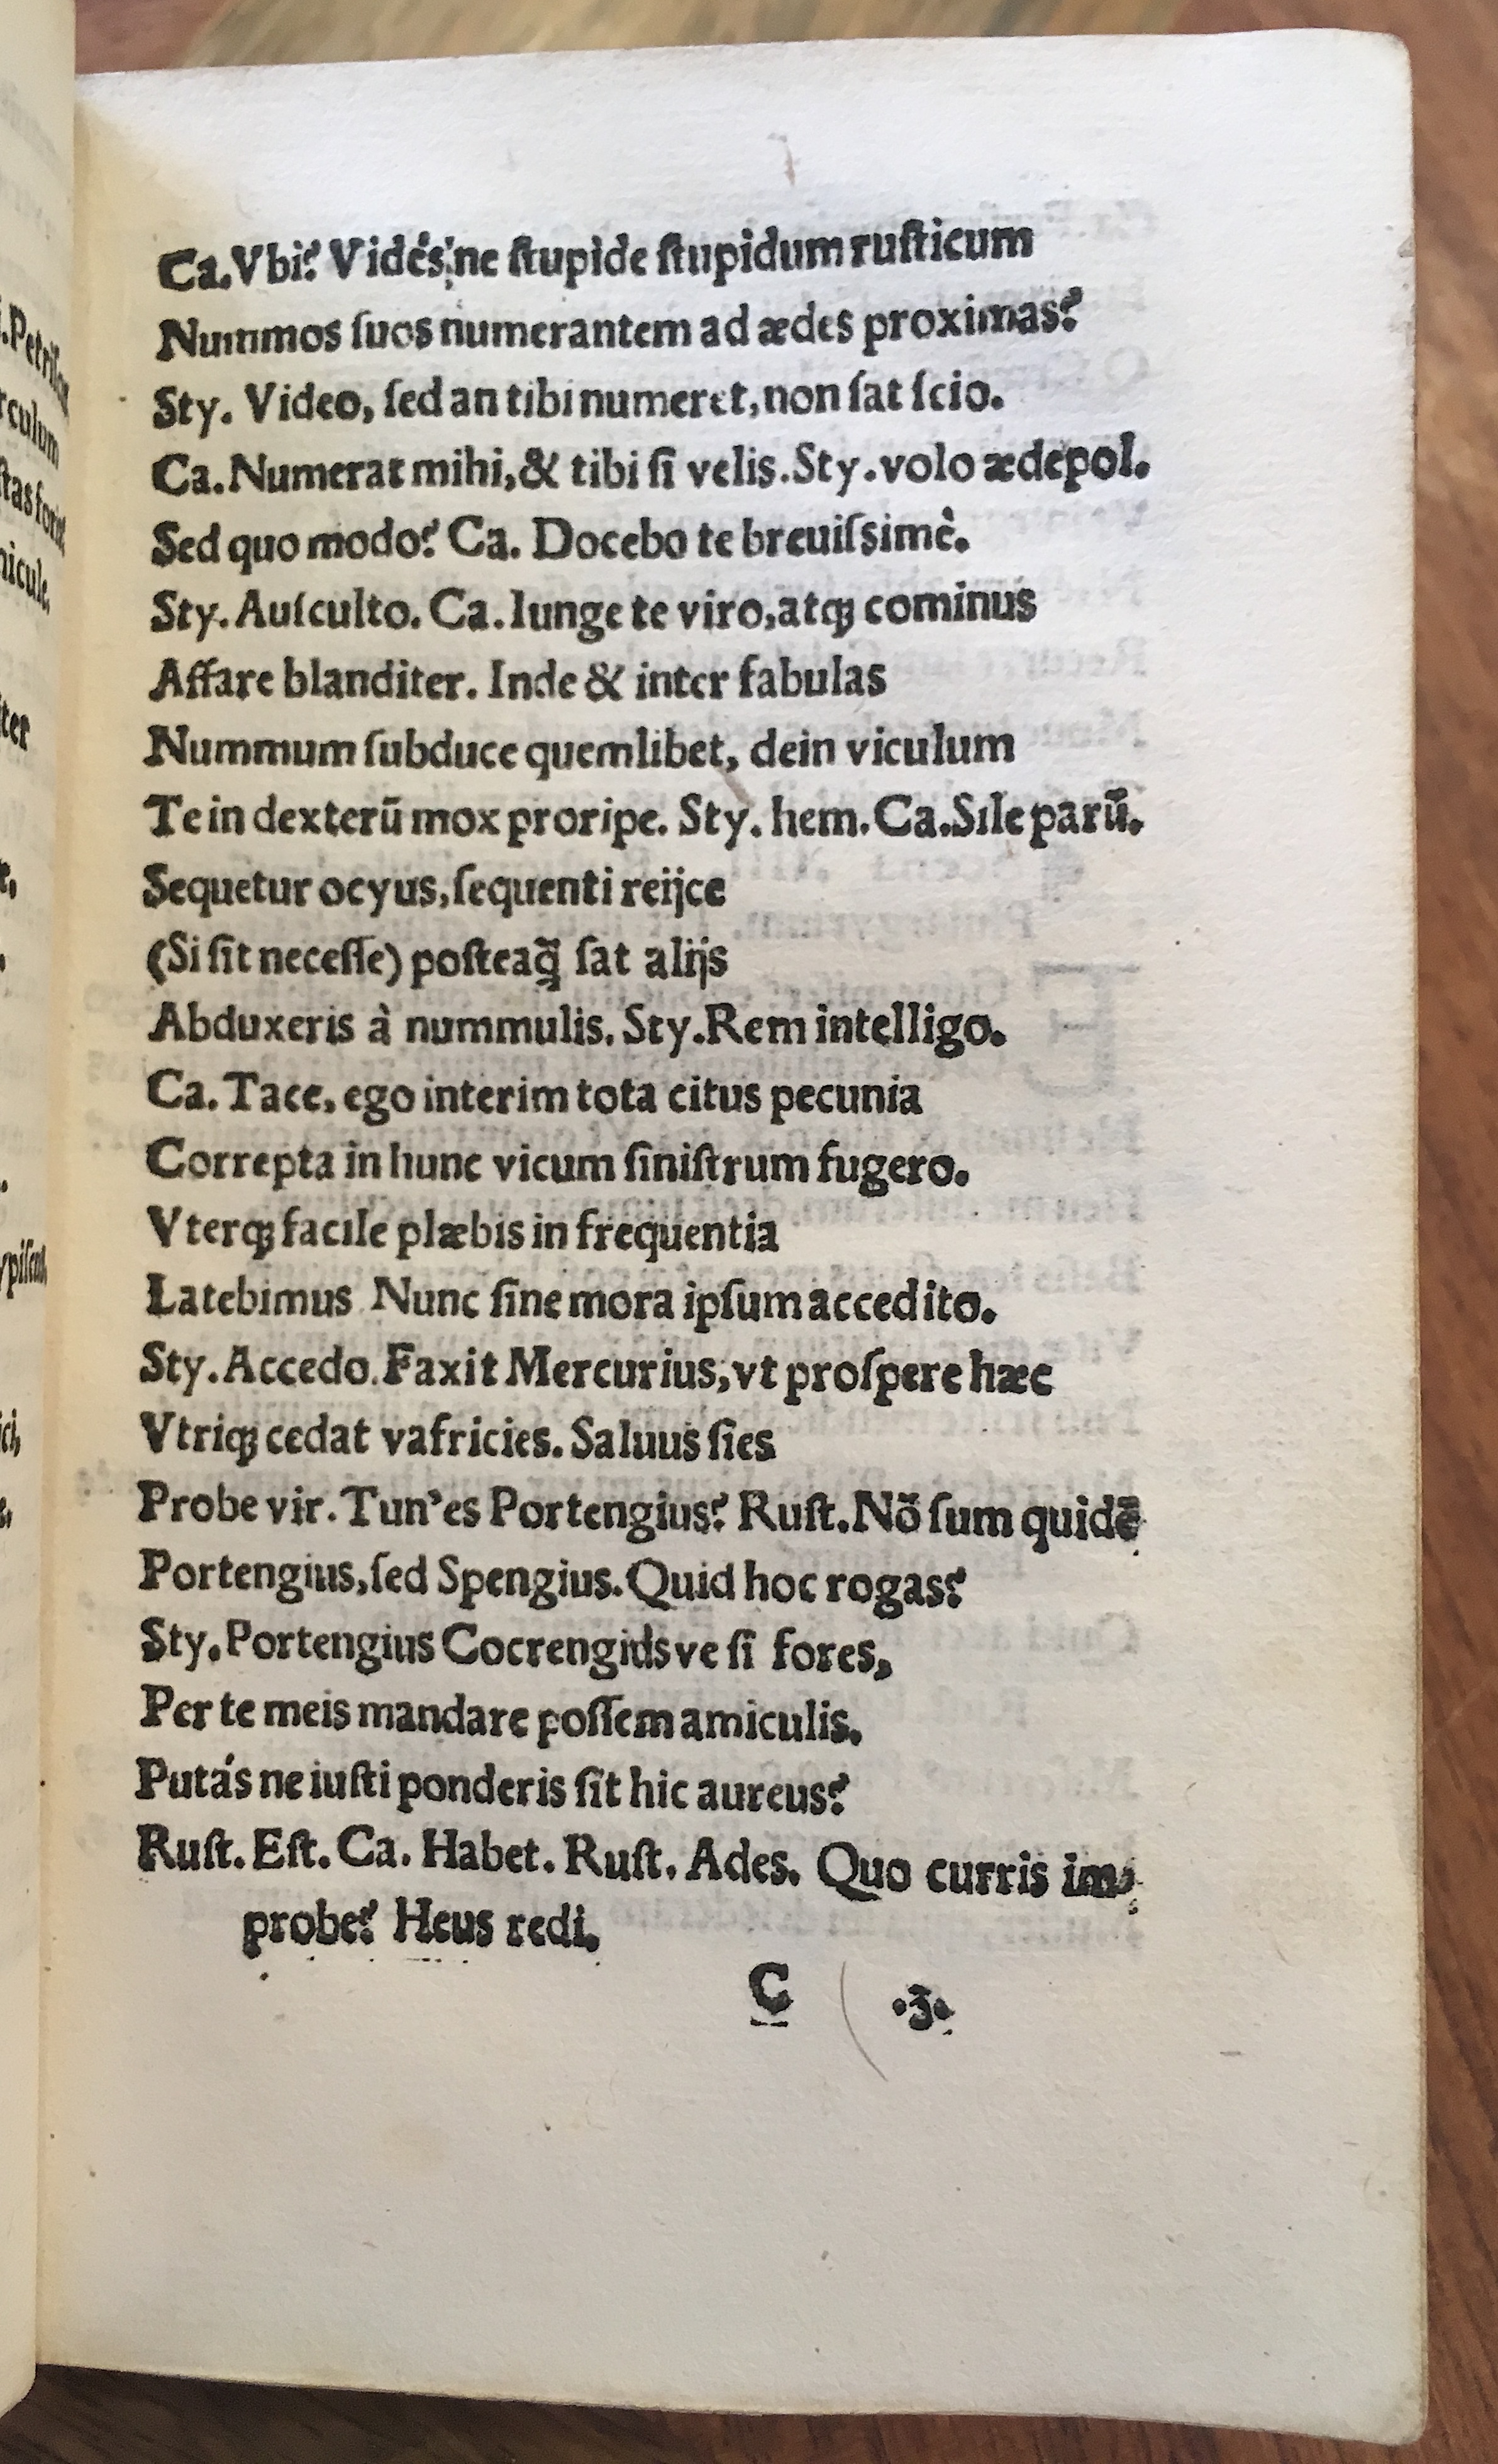 Ca. Vbi? Vidés'ne ſtupide ſtupidum ruſticum
Nummos ſuos numerantem ad ædes proximas?
Sty. Video, ſed an tibi numeret, non ſat ſcio.
Ca. Numerat mihi, & tibi ſi velis. Sty. volo ædepol.
Sed quo modo? Ca. Docebo te breuiſsimè.
Sty. Auſculto. Ca. Iunge te viro, atqꝫ cominus
Affare blanditer. Inde & inter fabulas
Nummum ſubduce quemlibet, dein viculum
Te in dexterū mox proripe. Sty. hem. Ca. Sile parū.
Sequetur ocyus, ſequenti reijce
(Si ſit neceſſe) poſteaq̃ ſat alijs
Abduxeris à nummulis. Sty. Rem intelligo.
Ca. Tace, ego interim tota citus pecunia
Correpta in hunc vicum ſiniſtrum fugero.
Vterqꝫ facile plæbis in frequentia
Latebimus. Nunc ſine mora ipſum accedito.
Sty. Accedo. Faxit Mercurius, vt proſpere hæc
Vtriqꝫ cedat vafricies. Saluus ſies
Probe vir. Tun'es Portengius? Ruſt. Nõ ſum quidē
Portengius, ſed Spengius. Quid hoc rogas?
Sty. Portengius ve ſi fores,
Per te meis mandare poſſem amiculis.
Putás ne iuſti ponderis ſit hic aureus?
Ruſt. Eſt. Ca. Habet. Ruſt. Ades. Quo curris im-
probe? Heus redi.
C .3.
ter